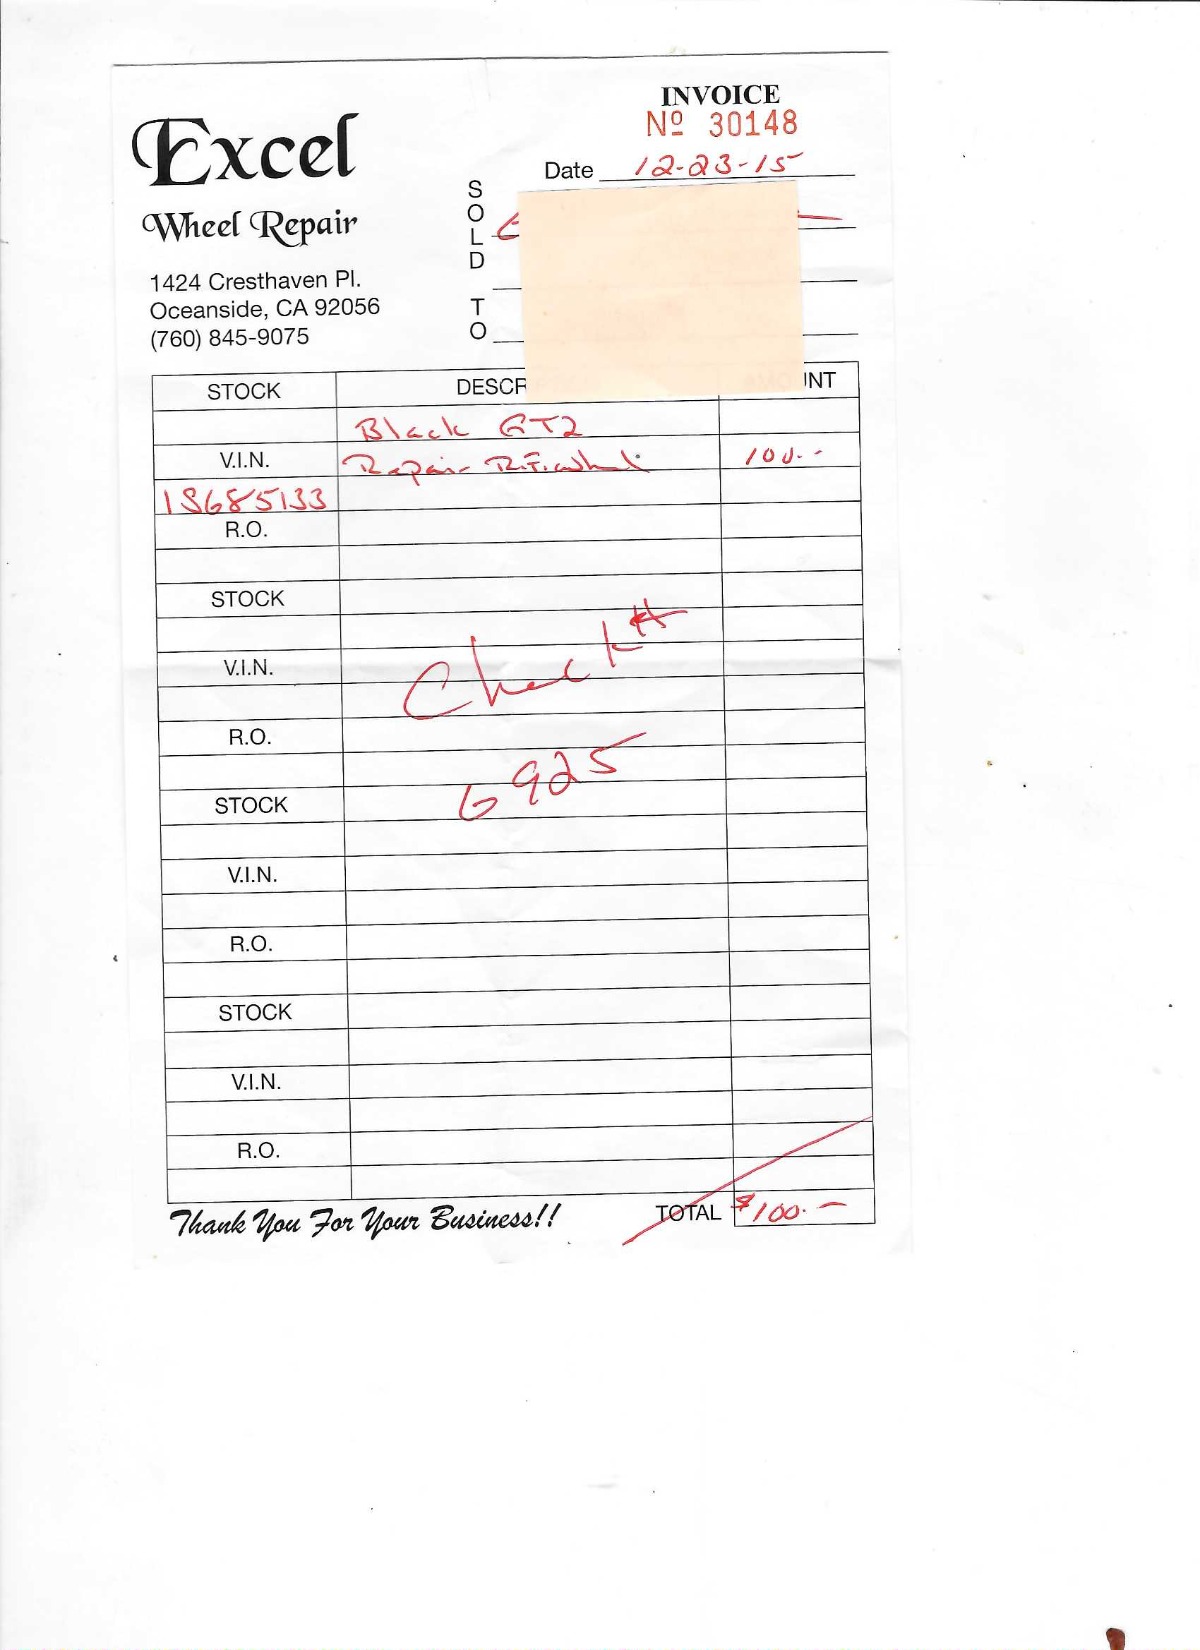 INVOICE
Nº 30148
Excel
Wheel Repair
1424 Cresthaven Pl.
Oceanside, CA 92056
(760) 845-9075
Date 12-23-15
SOLD TO
STOCK DESCR UNT
Black GT2
V.I.N. Repair R.F. wheel 100.-
1S685133
R.O.
STOCK
Check #
V.I.N.
R.O.
6925
STOCK
V.I.N.
R.O.
STOCK
V.I.N.
R.O.
Thank You For Your Business!! TOTAL $100.-